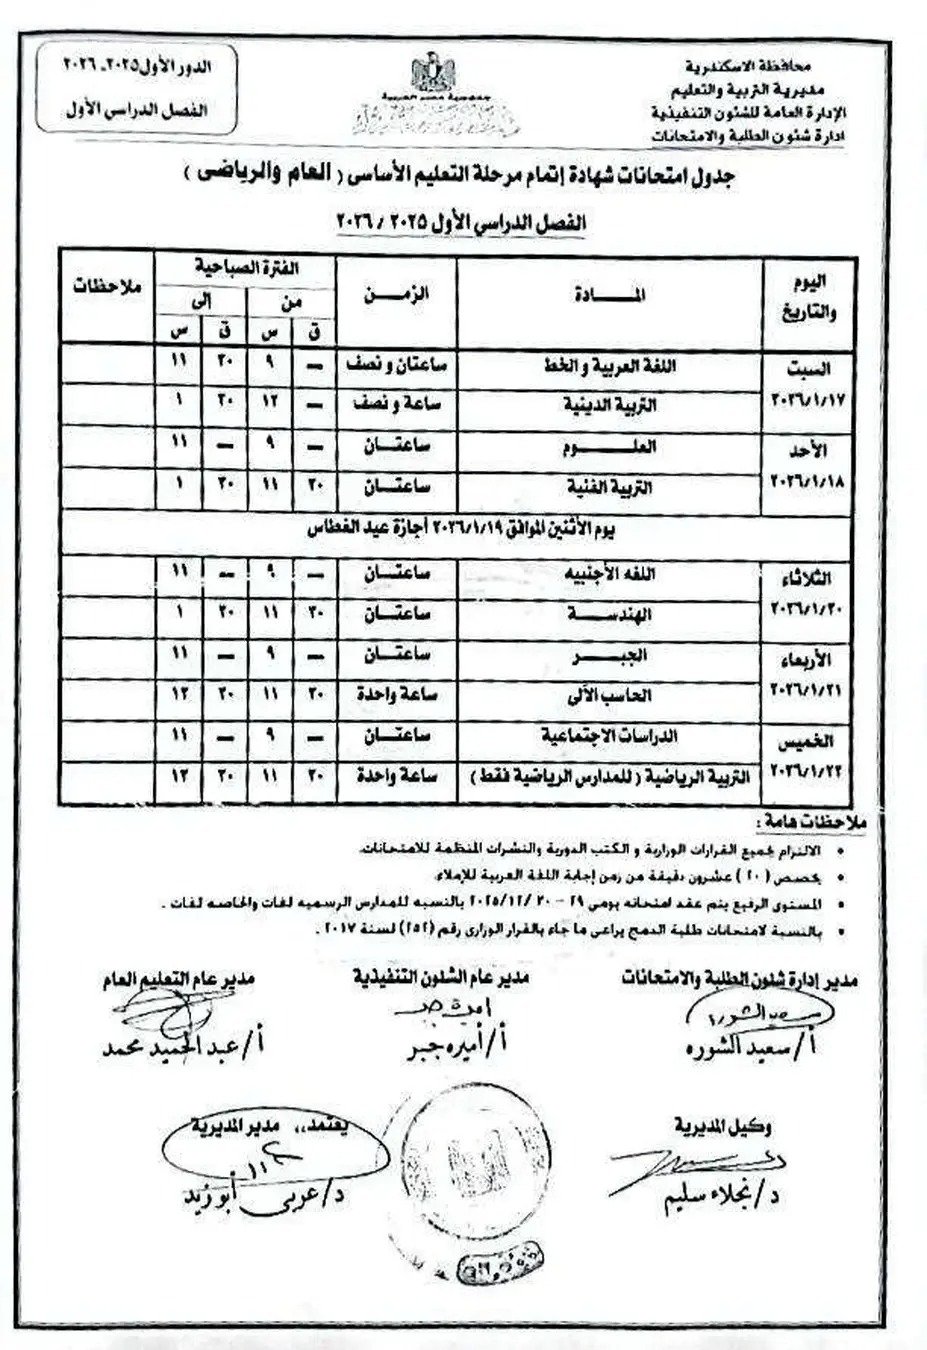 محافظة الاسكندرية
مديرية التربية والتعليم
الإدارة العامة للشئون التنفيذية
ادارة شئون الطلبة والامتحانات
جمهورية مصر العربية
الدور الأول ٢٠٢٥ـ ٢٠٢٦
الفصل الدراسي الأول
جدول امتحانات شهادة إتمام مرحلة التعليم الأساسى ( العام والرياضى )
الفصل الدراسي الأول ٢٠٢٥ / ٢٠٢٦
اليوم والتاريخ المــادة الزمــن الفترة الصباحية ملاحظات
من إلى
ق س ق س
السبت ٢٠٢٦/١/١٧ اللغة العربية و الخط ساعتان و نصف — ٩ ٣٠ ١١
التربية الدينية ساعة و نصف — ١٢ ٣٠ ١
الأحد ٢٠٢٦/١/١٨ العلــوم ساعتــان — ٩ — ١١
التربية الفنية ساعتــان ٣٠ ١١ ٣٠ ١
يوم الأثنين الموافق ٢٠٢٦/١/١٩ أجازة عيد الغطاس
الثلاثاء ٢٠٢٦/١/٢٠ اللغه الأجنبيه ساعتــان — ٩ — ١١
الهندســة ساعتــان ٣٠ ١١ ٣٠ ١
الأربعاء ٢٠٢٦/١/٢١ الجبــر ساعتــان — ٩ — ١١
الحاسب الآلى ساعة واحدة ٣٠ ١١ ٣٠ ١٢
الخميس ٢٠٢٦/١/٢٢ الدراسات الاجتماعية ساعتــان — ٩ — ١١
التربية الرياضية ( للمدارس الرياضية فقط ) ساعة واحدة ٣٠ ١١ ٣٠ ١٢
ملاحظات هامة :
• الالتزام بجميع القرارات الوزارية و الكتب الدورية والنشرات المنظمة للامتحانات.
• يخصص ( ٢٠ ) عشرون دقيقة من زمن إجابة اللغة العربية للإملاء.
• المستوى الرفيع يتم عقد امتحانه يومى ٢٩ – ٣٠ /٢٠٢٥/١٢ بالنسبه للمدارس الرسميه لغات والخاصه لغات .
• بالنسبة لامتحانات طلبة الدمج يراعى ما جاء بالقرار الوزارى رقم (٢٥٢) لسنة ٢٠١٧ .
مدير إدارة شئون الطلبة والامتحانات
أ/ سعيد الشوره
مدير عام الشئون التنفيذية
أ/ أميره جبر
مدير عام التعليم العام
أ/ عبد الحميد محمد
وكيل المديرية
د/ نجلاء سليم
يعتمد،، مدير المديرية
د/ عربى أبو زيد